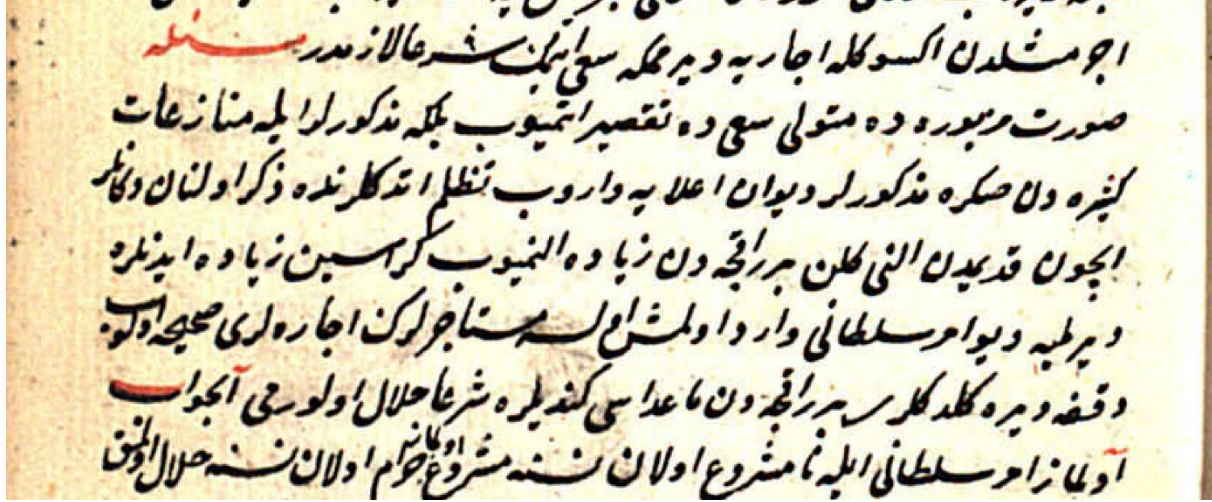 اجر مثلدن اكسوكله اجاريه ويرممكه سعى ايتمك شرعا لازمدر مسئله
صورت مزبوره ده متولى سعى ده تقصير ايتميوب بلكه مذكورلر ايله منازعات
كثيره دن صكره مذكورلر ديوان اعلايه واروب تظلم اتدكلرنده ذكر اولنان دكانلر
ايچون قديمدن النى كلن برر اقچه دن زياده النميوب كراسين زياده ايدنلره
ويرلميه ديو امر سلطانى وارد اولمش اولسه مستاجرلرك اجاره لرى صحيحه اولوب
وقفه ويره كلدكلرى برر اقچه دن ماعداسى كنديلره شرعا حلال اولورمى الجواب
اولماز امر سلطانى ايله نامشروع اولان نسنه مشروع اولمز حرام اولان نسنه حلال اولمق